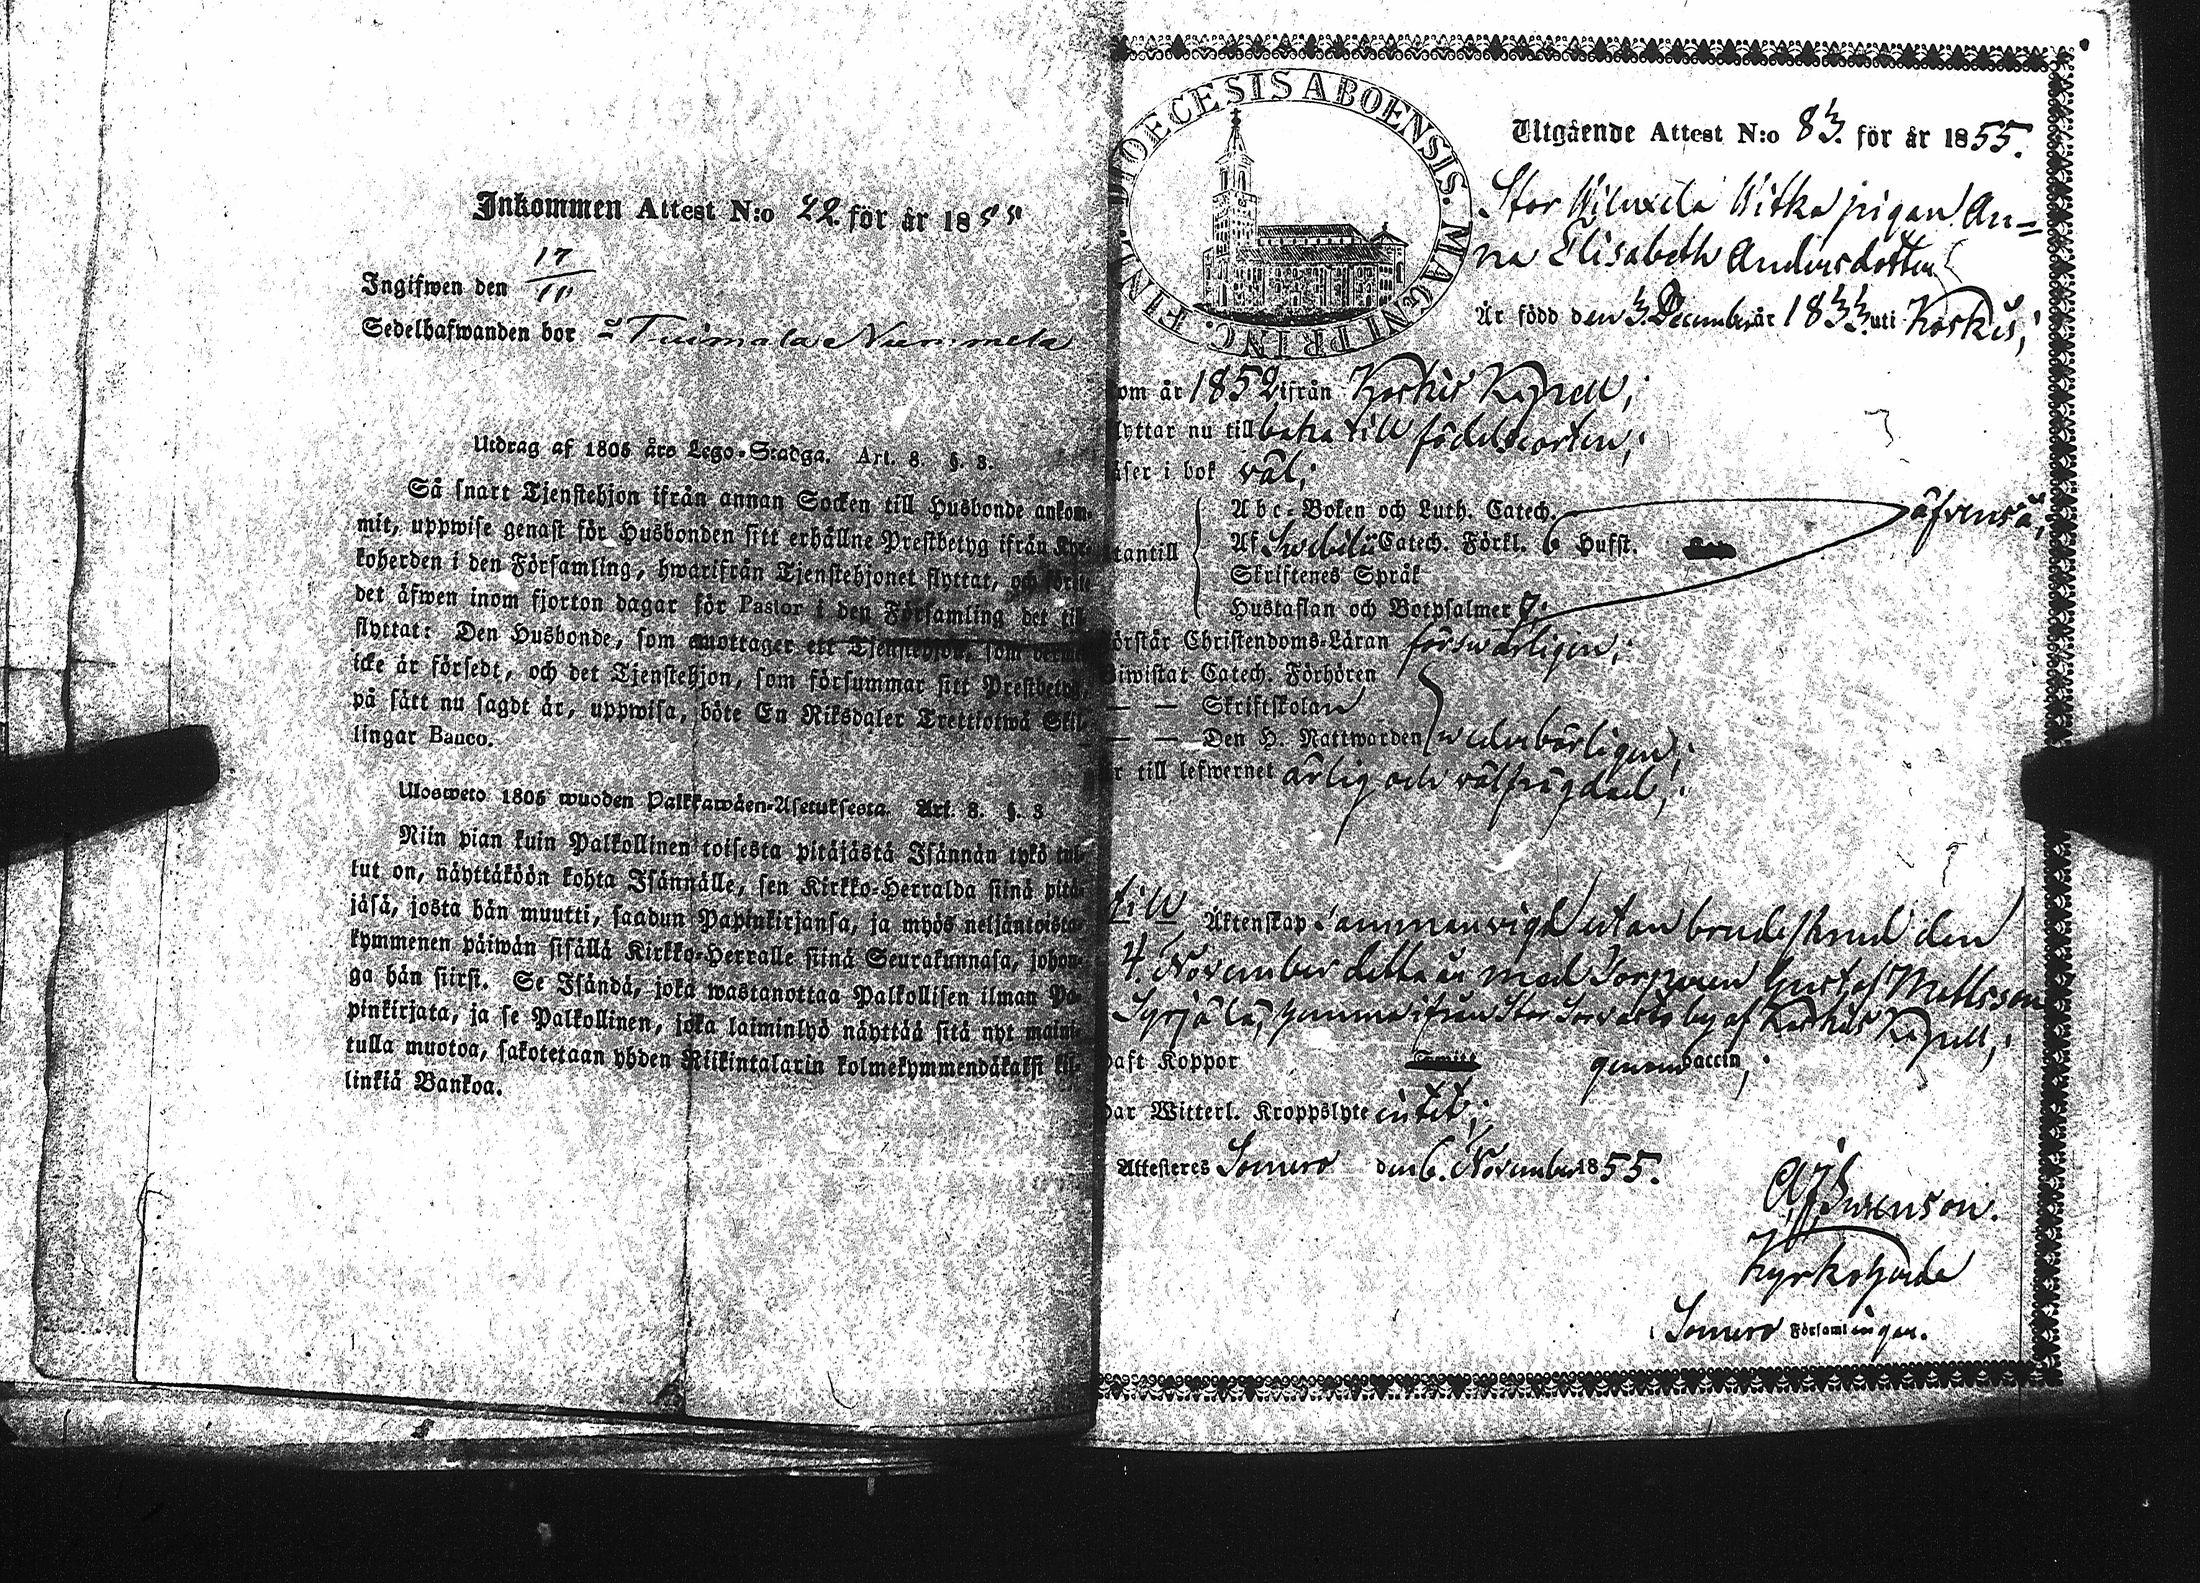 Inkommen Attest N:o 22 för år 1855
Ingifwen den 17/11
Sedelhafwanden bor Tuimala Nummela
Utdrag af 1805 års Lego-Stadga. Art. 8. §. 3.
Så snart Tjenstehjon ifrån annan Socken till Husbonde ankom-
mit, uppwise genast för Husbonden sitt erhållne Prestbetyg ifrån Kyr-
koherden i den Församling, hwarifrån Tjenstehjonet flyttat, och
det äfwen inom fjorton dagar för Pastor i den Församling det till
flyttat: Den Husbonde, som emottager ett Tjenstehjon, som dermed
icke är försedt, och det Tjenstehjon, som försummar sitt Prestbetyg,
på sätt nu sagdt är, uppwisa, böte En Riksdaler Trettiotwå Skil-
lingar Banco.
Uloswеto 1805 wuoden Palkkawäen-Asetuksesta. Art. 8. §. 3
Niin pian kuin Palkollinen toisesta pitäjästä Isännän tykö tul-
lut on, näyttäköön kohta Isännälle, sen Kirkko-Herralda siinä pitä-
jäsä, josta hän muutti, saadun Papinkirjansa, ja myös neljäntoista-
kymmenen päiwän sisällä Kirkko-Herralle siinä Seurakunnasa, johon-
ga hän siirsi. Se Isändä, joka wastanottaa Palkollisen ilman Pa-
pinkirjata, ja se Palkollinen, joka laiminlyö näyttää sitä nyt maini-
tulla muotoa, sakotetaan yhden Riikintalarin kolmekymmendäkaksi kil-
linkiä Bankoa.
DIOECESIS ABOENSIS. MAGNI PRINC. FINL.
Utgående Attest N:o 83. för år 1855.
Stor Wiluxela Witka pigan An=
na Elisabeth Andersdotter
Är född den 3. December år 1833. uti Koskis;
om år 1852 ifrån Koskis Kapell;
lyttar nu till baka till födelseorten;
äser i bok väl;
Abc-Boken och Luth. Catech.
tantill Af Swebilii Catech. Förkl. 6 Husst. äfvenså;
Skriftenes Språk
Hustaflan och Botpsalmer 7;
örstår Christendoms-Läran försvarligen;
iwistat Catech. Förhören
— — Skriftskolan
— — Den H. Nattwarden vederbörligen;
r till lefwernet ärlig och välfrägdad;
till Äktenskap sammanvigd utan brudeskrud den
4. November detta år med Torparen Gustaf Mattsson
Syrjälä, hemma ifrån Stor Sorvasto by af Koskis Kapell;
haft Koppor genom vaccin;
har Witterl. Kroppslyte intet;
Attesteres Somero den 6. November 1855.
Kyrkoherde
i Somero Församlingen.